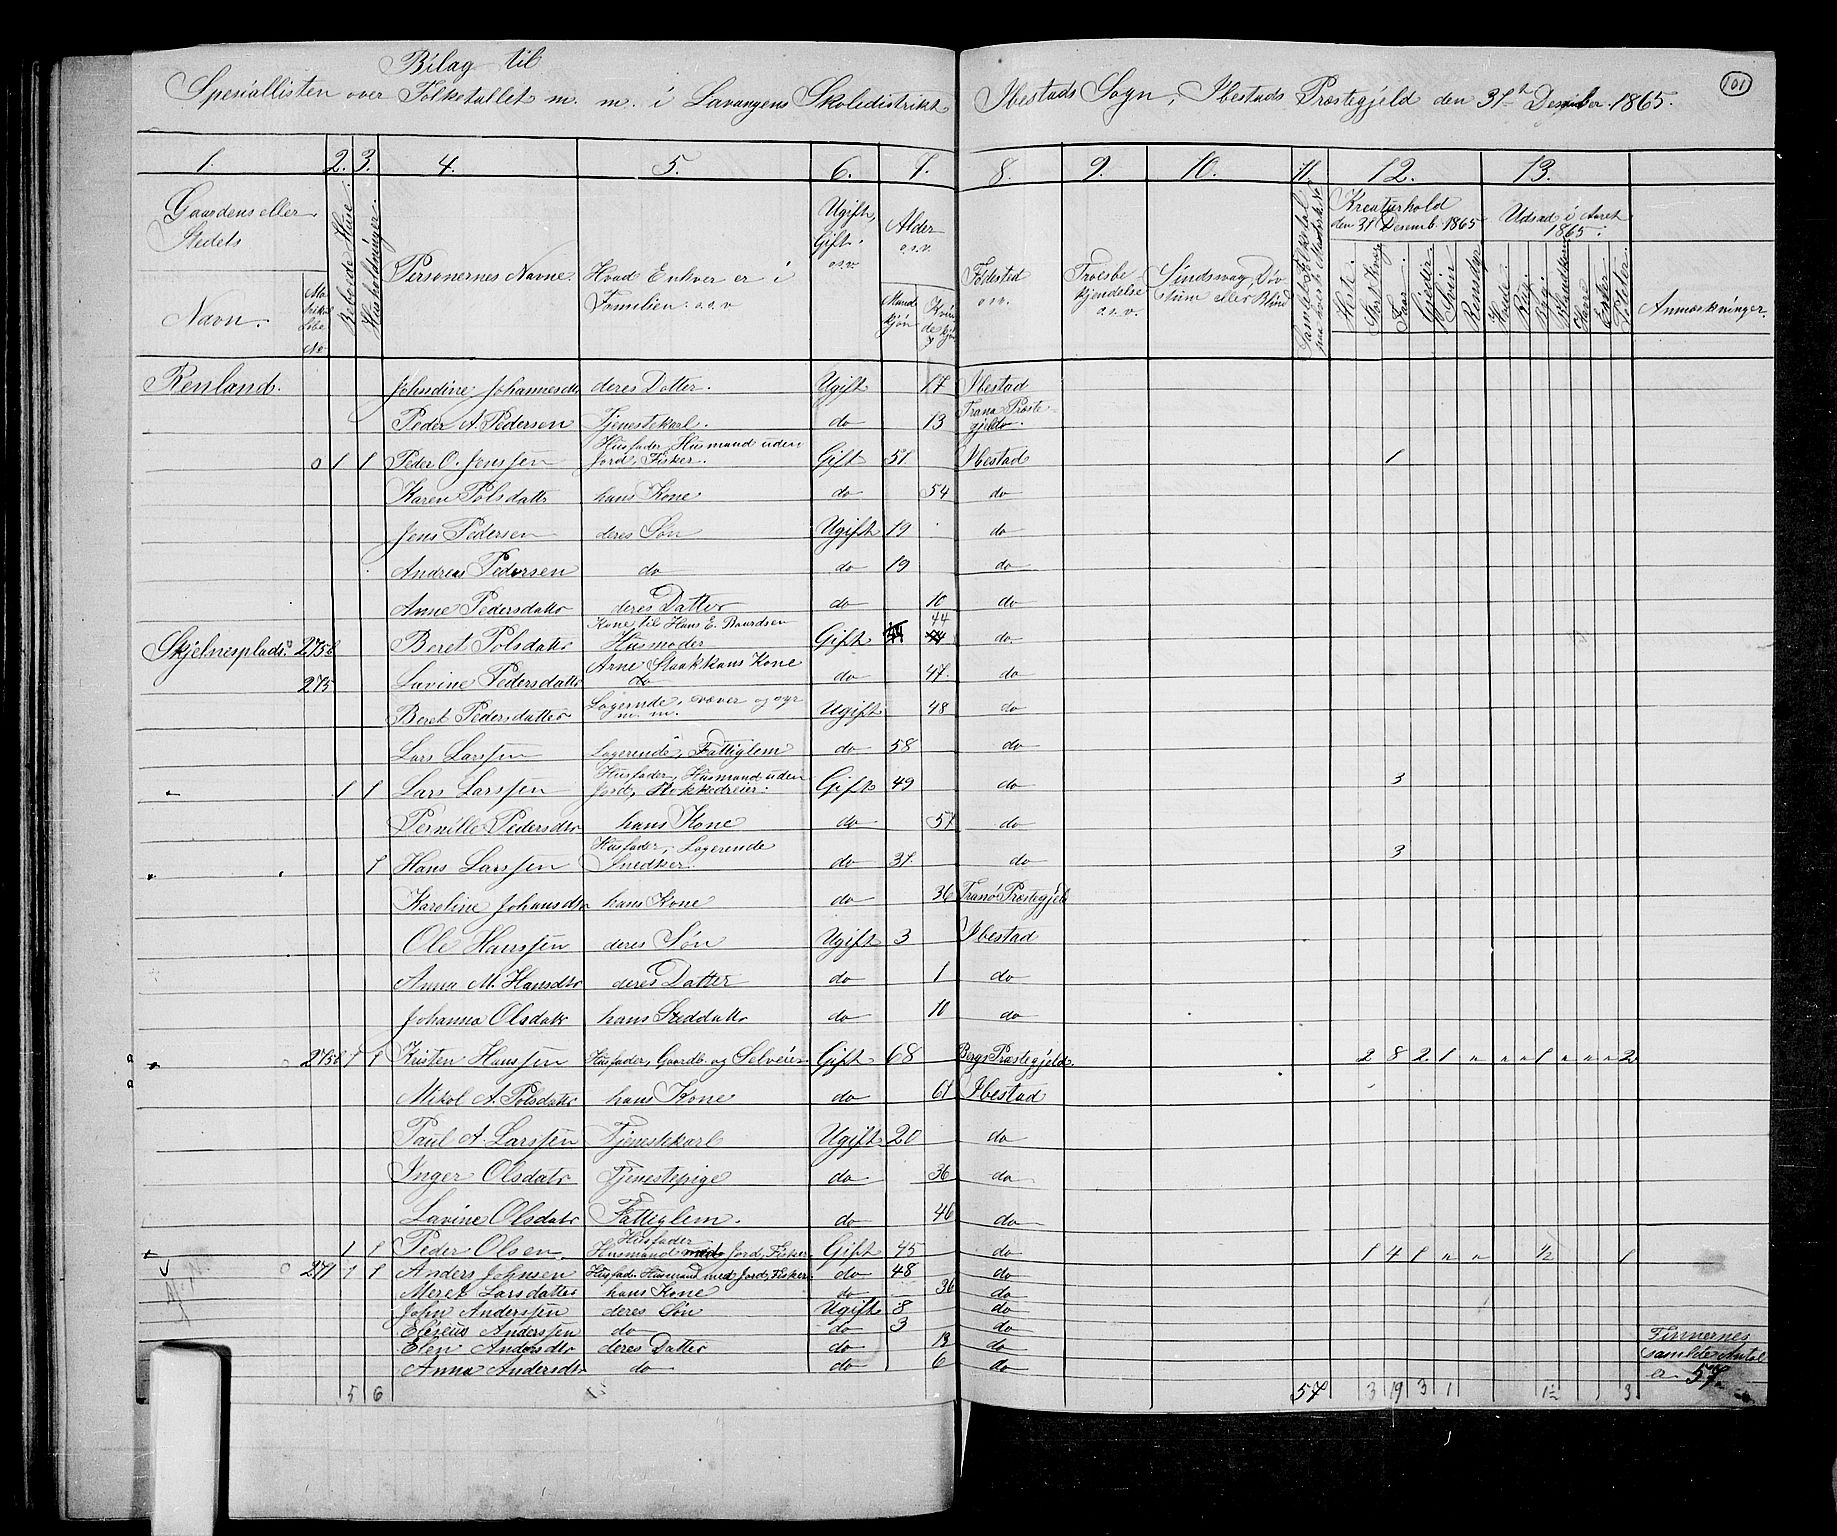 101
Bilag til
Spesiallisten over Folketallet m. m. i Lavangens Skoledistrikt Ibestads Sogn, Ibestads Præstegjeld den 31te Desember 1865.
1. 2. 3. 4. 5. 6. 7. 8. 9. 10. 11. 12. 13.
Gaardens eller Stedets
Navn.
Matrikul Løbe No
Beboede Huse
Husholdninger.
Personernes Navne.
Hvad Enhver er i Familien o.s.v
Ugift, Gift o.s.v
Alder o.s.v.
Mandkjøn
Kvindekjøn
Fødested o.s.v.
Troesbekjendelse o.s.v.
Sindssvag, Døvstum eller Blind
Samlet Folketal paa hvert Matrik. No
Kreaturhold den 31 Desemb. 1865
Heste. Stort Kvæg Faar. Gjeder. Svin Rensdyr
Udsæd i Aaret 1865.
Hvede. Rug. Byg. Blandkorn Havre Erter Poteter.
Anmærkninger.
Renland. Johndine Johannesdtr deres Datter. Ugift 17 Ibestad
Peder A. Pedersen Tjenestekarl. do 13 Tranø Præstegjeld.
0 1 1 Peder O. Jenssen Husfader, Husmand uden Jord, Fisker. Gift 51 Ibestad 1
Karen Polsdattr hans Kone do 54 do
Jens Pedersen deres Søn Ugift 19 do
Andreas Pedersen do do 19 do
Anne Pedersdattr deres Datter do 10 do
Skjelnesplads 275b Beret Polsdattr Kone til Hans E. Baardsen Husmoder Gift 44 do
275 Lavine Pedersdattr Arne Staakkans Kone do do 47. do
Beret Pedersdatter Logerende, væver og syr m. m. Ugift 48 do
Lars Larssen Logerende, Fattiglem do 58 do
" 1 1 Lars Larssen Husfader, Husmand uden Jord, Stokkedreier. Gift 49 do 3
Pernille Pedersdtr hans Kone do 57 do
" " 1 Hans Larssen Husfader, Logerende Snedker. do 37. do 3
Karoline Johansdtr hans Kone do 36 Tranø Præstegjeld
Ole Hanssen deres Søn Ugift 3 Ibestad
Anna M. Hansdtr deres Datter do 1 do
Johanna Olsdattr hans Steddattr do 10 do
a " a 0 275b 1 1 Kristen Hanssen Husfader, Gaardb. og Selveier Gift 68 Bergs Præstegjeld. 2 8 2 1 " " " 1 " " " 2
Mikol A. Polsdattr hans Kone do 61 Ibestad
Paul A. Larssen Tjenstekarl Ugift 20 do
Inger Olsdattr Tjenestepige do 36 do
Lavine Olsdattr Fattiglem. do 46 do
" 1 1 Peder Olsen. Husfader Husmand med Jord, Fisker Gift 45 do 1 4 1 " " ½ 1
0 271 1 1 Anders Johnsen Husfad. Husmand med Jord, Fisker do 48 do
Meret Larsdatter hans Kone do 36 do
John Anderssen deres Søn Ugift 8 do
Eliseus Anderssen do do 3 do
Elen Andersdtr deres Datter do 13 do
Anna Andersdtr do do 6 do
Finnernes samlede Antal a 57
5 6 57 3 19 3 1 1½ 3